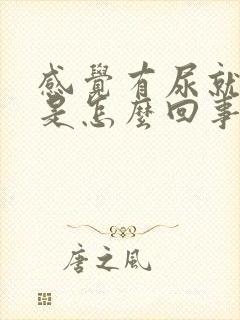 感覺有尿就
是怎麼回事
唐之風